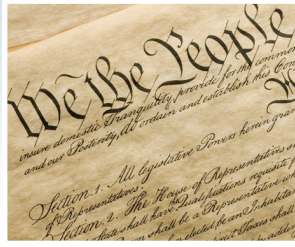 We the People
insure domestic Tranquility, provide for the common
and our Posterity, do ordain and establish this Con
Section. 1. All legislative Powers herein gran
of Representatives.
Section. 2. The House of Representatives
State shall have Qualifications requisite f
shall be a Representative who
elected be an Inhabitan